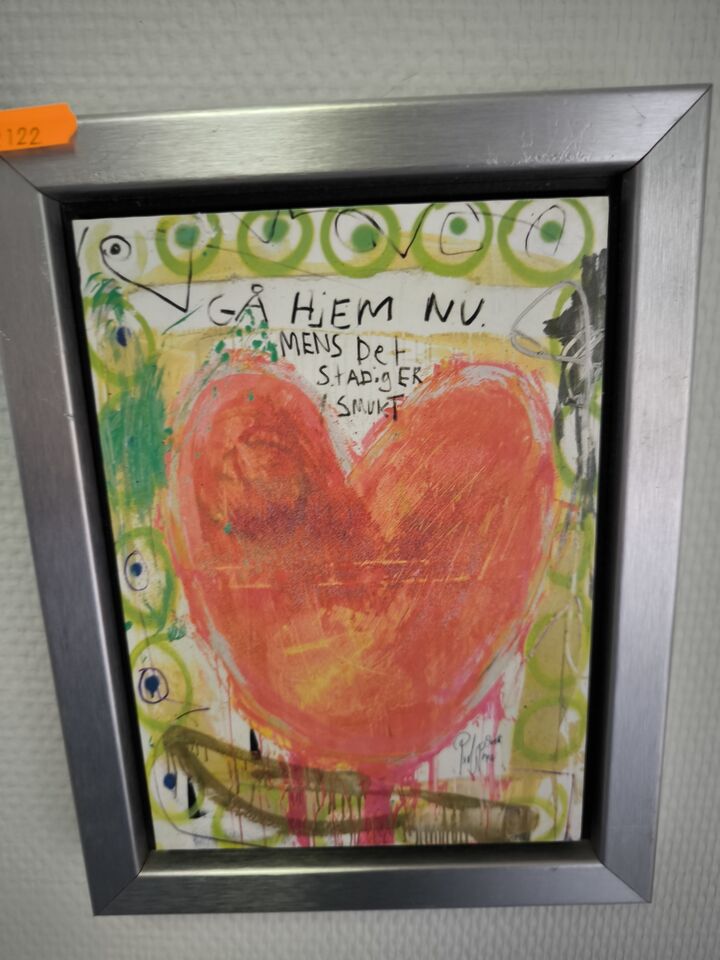 2122
GÅ HJEM NU.
MENS Det
StADig ER
SMUKT